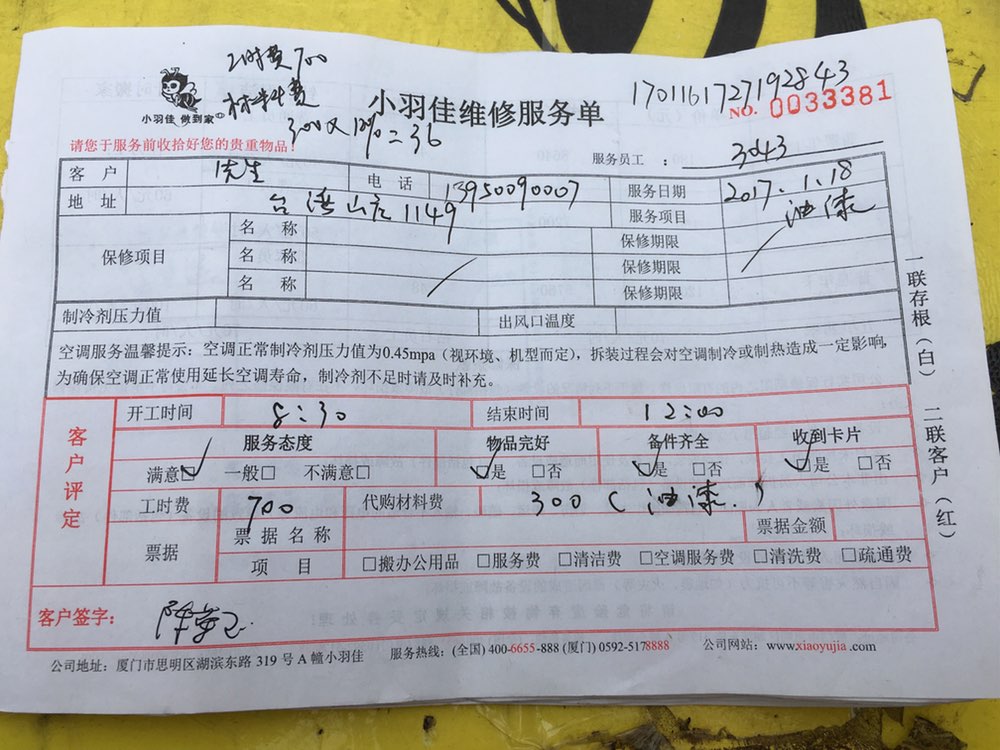 工时费700
材料费
300X12%=36
小羽佳 做到家
小羽佳维修服务单
1701161727192843
NO. 0033381
请您于服务前收拾好您的贵重物品!
服务员工: 3043
客户 先生 电话 13950090007 服务日期 2017.1.18
地址 台湾山庄1149 服务项目 油漆
保修项目 名称 保修期限
名称 保修期限
名称 保修期限
制冷剂压力值 出风口温度
空调服务温馨提示:空调正常制冷剂压力值为0.45mpa(视环境、机型而定),拆装过程会对空调制冷或制热造成一定影响,
为确保空调正常使用延长空调寿命,制冷剂不足时请及时补充。
一联存根(白) 二联客户(红)
客户评定
开工时间 8:30 结束时间 12:00
服务态度 物品完好 备件齐全 收到卡片
满意☑ 一般□ 不满意□ ☑是 □否 ☑是 □否 ☑是 □否
工时费 700 代购材料费 300(油漆.)
票据 票据名称 票据金额
项目 □搬办公用品 □服务费 □清洁费 □空调服务费 □清洗费 □疏通费
客户签字:
公司地址:厦门市思明区湖滨东路 319 号 A 幢小羽佳 服务热线:(全国) 400-6655-888 (厦门) 0592-5178888 公司网站:www.xiaoyujia.com